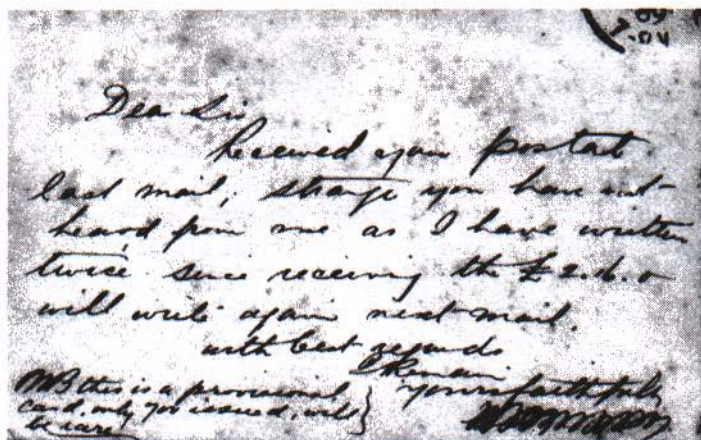 Dear Sir
Received your postcard
last mail, strange you have not
heard from me as I have written
twice since receiving the £2.6.0
will write again next mail.
with best regards
I Remain
yours faithfully
NB this is a provisional
card, only 700 issued, will
be rare